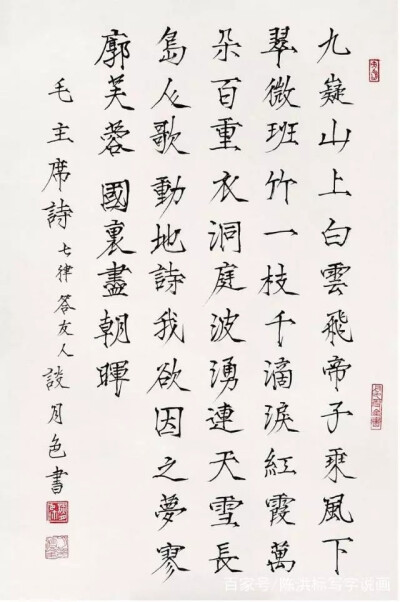 九嶷山上白雲飛帝子乘風下
翠微班竹一枝千滴淚紅霞萬
朵百重衣洞庭波湧連天雪長
島人歌動地詩我欲因之夢寥
廓芙蓉國裏盡朝暉
毛主席詩七律答友人談月色書
百家号/陈洪标写字说画